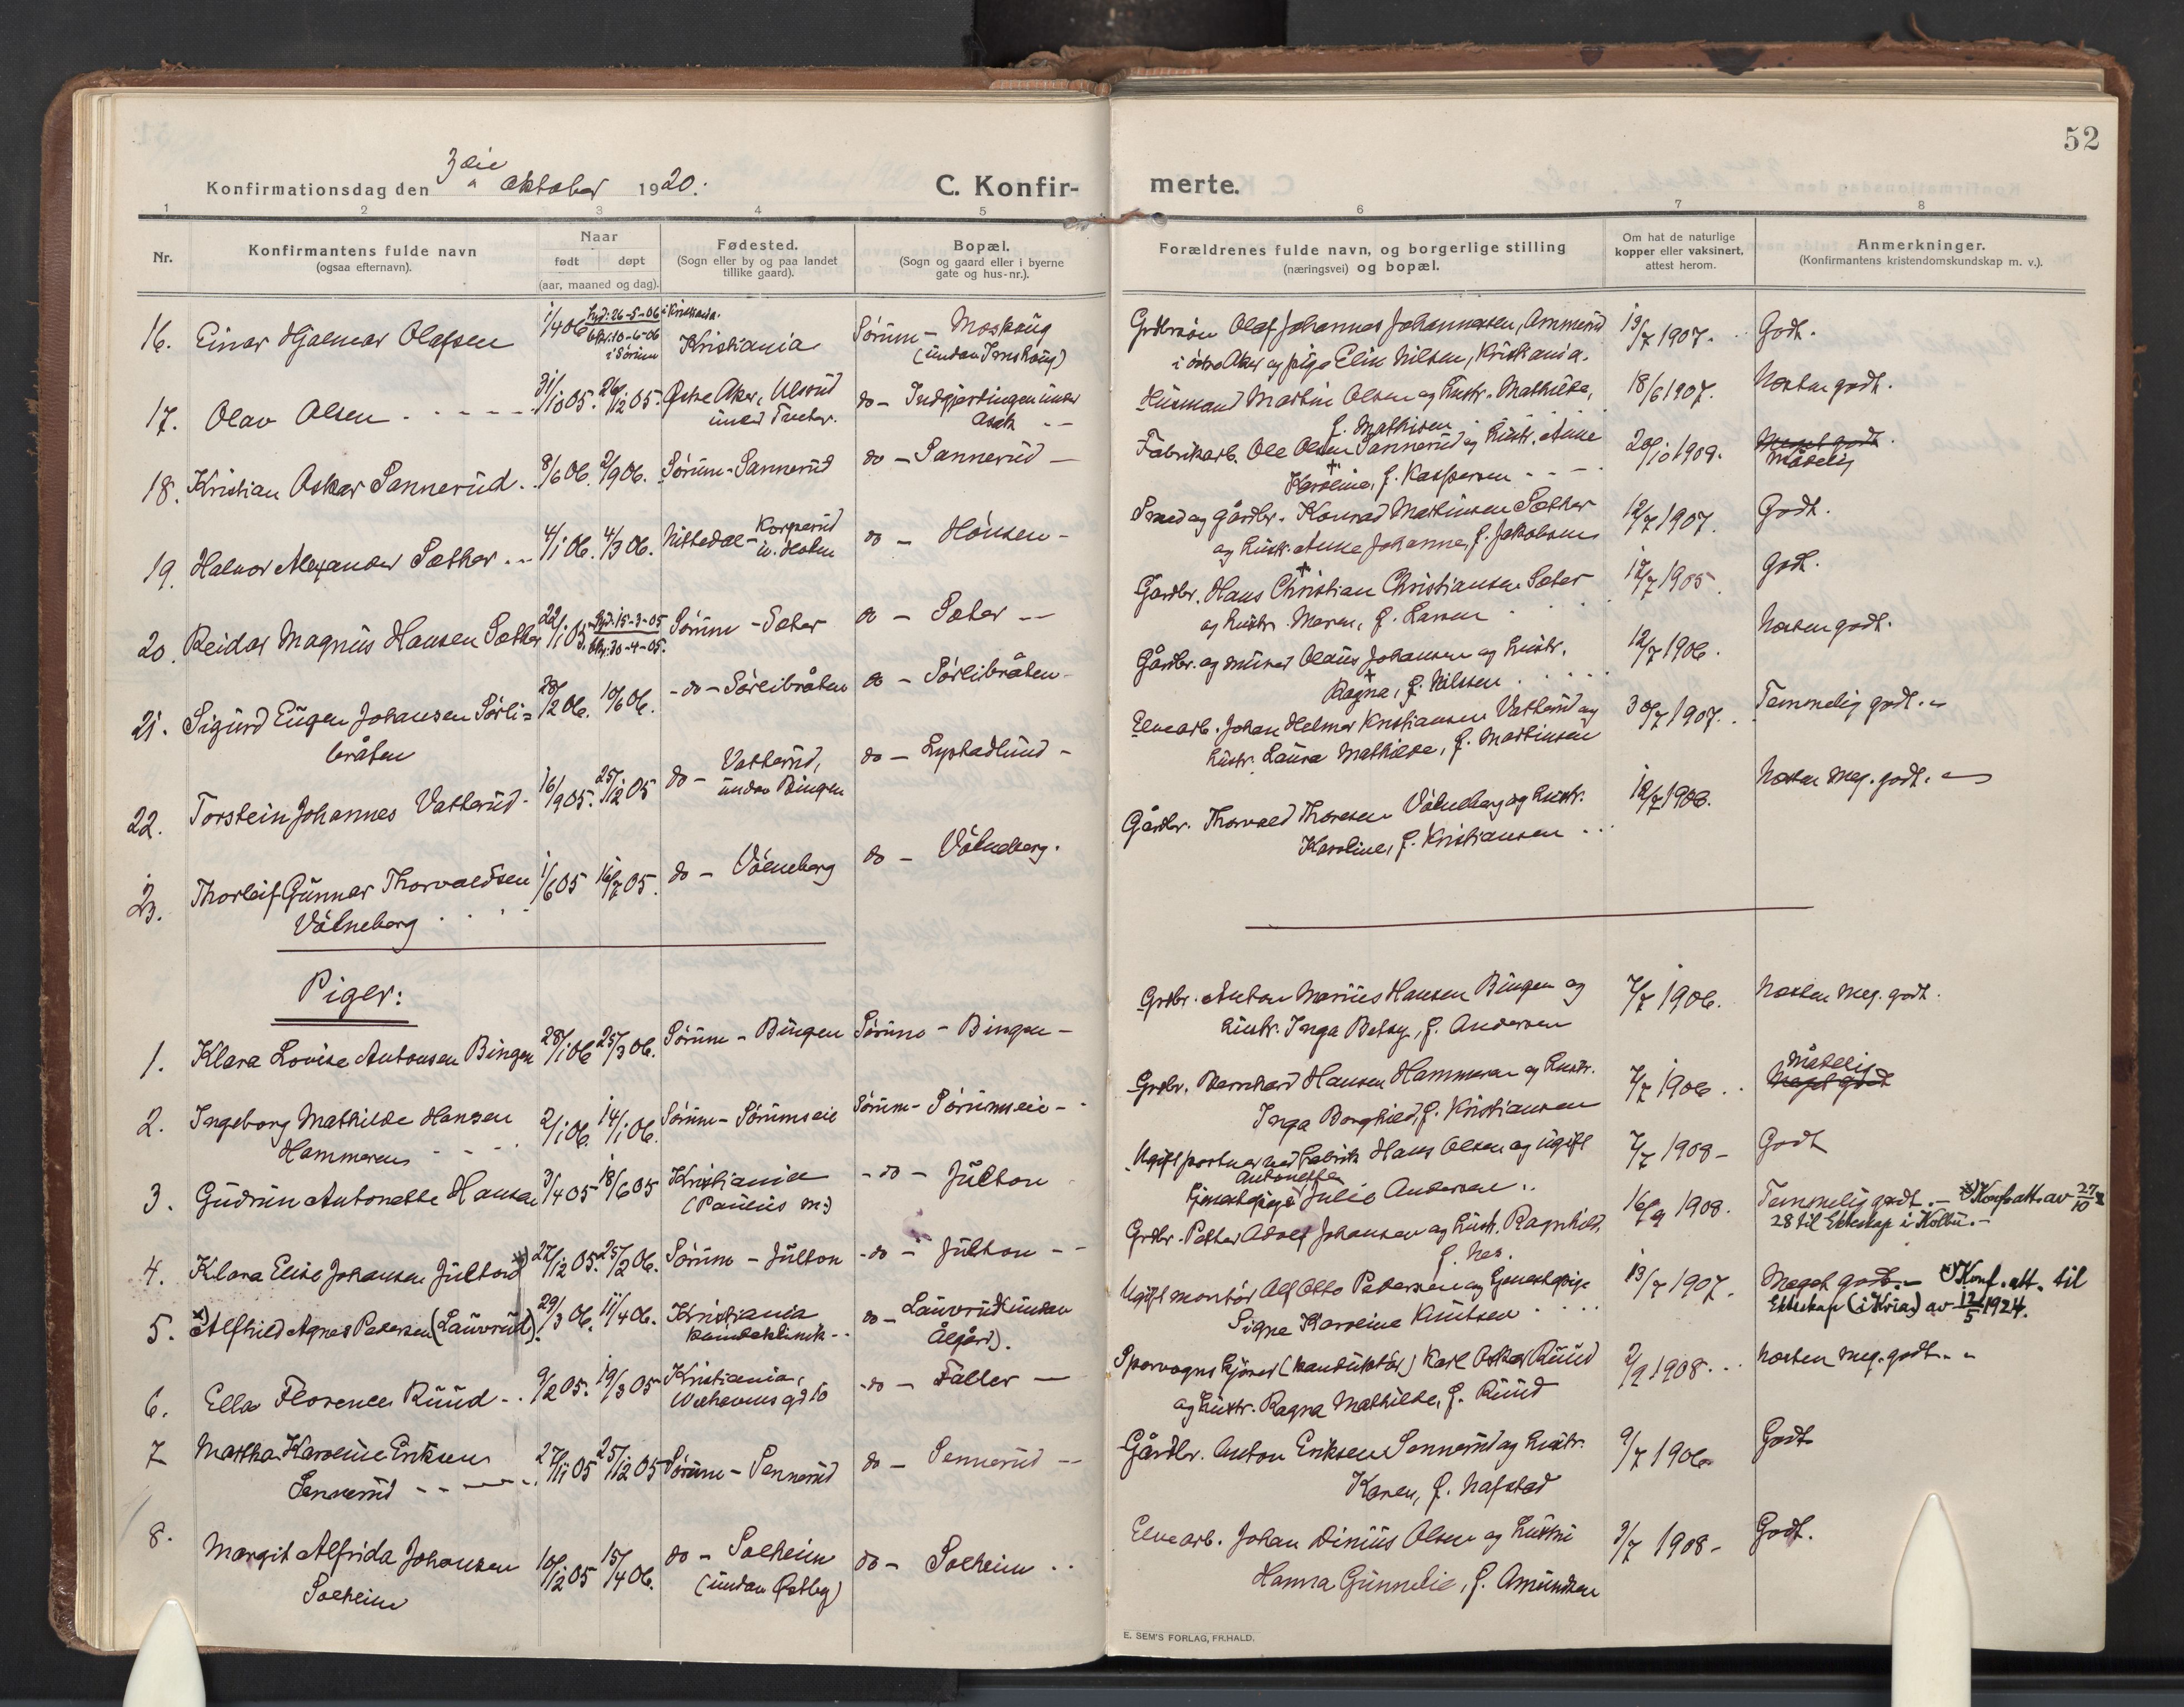 52
Konfirmationsdag den 3die oktober 1920.
C. Konfir-
merte.
1 2 3 4 5 6 7 8
Nr.
Konfirmantens fulde navn
(ogsaa efternavn).
Naar
født døpt
(aar, maaned og dag).
Fødested.
(Sogn eller by og paa landet
tillike gaard).
Bopæl.
(Sogn og gaard eller i byerne
gate og hus-nr.).
Forældrenes fulde navn, og borgerlige stilling
(næringsvei) og bopæl.
Om hat de naturlige
kopper eller vaksinert,
attest herom.
Anmerkninger.
(Konfirmantens kristendomskundskap m. v.).
16. Einar Hjalmar Olafsen 1/4 06 hjd: 26-5-06 i Kristiania.
bkr: 10-6-06
i Sörum
Kristiania
Sörum - Moshaug
Grdbr.sön Olaf Johannes Johannesen, Ammerud
i östre Aker og pige Elise Nilsen, Kristiania.
13/7 1907. Godt.
17. Olav Olsen 31/10 05. 26/12 05. Östre Aker, Ulsrud
under Tveter.
do - Indgjerdingen under
Asak
Husmand Martin Olsen og hustr. Mathilde,
f. Mathisen
18/6 1907. Næsten godt.
18. Kristian Oskar Sannerud 8/6 06. 2/9 06. Sörum - Sannerud do - Sannerud -
Fabrikarb. Ole Olsen Sannerud og hustr. Anne
Karoline, f. Kaspersen
20/10 1909. Meget godt.
Måtelig
19. Halvor Alexander Sæther 4/1 06. 4/3 06. Nittedal - Korpserud
u. Holm
do - Hönsen -
Smed og gårdbr. Konrad Martinsen Sæther
og hustr. Anne Johanne, f. Jakobsen
12/7 1907. Godt.
20. Reidar Magnus Hansen Sæther 22/1 05. hjd: 15-3-05
bkr: 30-4-05.
Sörum - Sæter do - Sæter --
Gårdbr. Hans Christian Christiansen Sæter
og hustr. Maren, f. Larsen
12/7 1905. Godt.
21. Sigurd Eugen Johansen Sörli=
bråten
28/2 06. 10/6 06. - do - Sörlibråten do - Sörlibråten -
Gårdbr. og murer Olaus Johansen og hustr.
Ragna, f. Nilsen
12/7 1906. Næsten godt.
22. Torstein Johannes Vatterud 16/9 05. 25/12 05 do - Vatterud,
under Bingen
do - Lystadlund -
Elvearb. Johan Helmer Kristiansen Vatterud og
hustr. Laura Mathilde, f. Martinsen
30/7 1907. Temmelig godt.
23. Thorleif Gunnar Thorvaldsen
Vålneberg
1/6 05 16/7 05. do - Vålneberg do - Vålneberg.
Gårdbr. Thorvald Thoresen Vålneberg og hustr.
Karoline, f. Kristiansen
12/7 1906. Næsten meg. godt.
Piger:
1. Klara Lovise Antonsen Bingen 28/1 06 25/3 06. Sörum - Bingen Sörum - Bingen -
Grdbr. Anton Marius Hansen Bingen og
hustr. Inga Betsy, f. Andersen
7/7 1906. Næsten meg. godt.
2. Ingeborg Mathilde Hansen
Hammeren
2/1 06 14/1 06. Sörum - Sörumseie Sörum - Sörumseie -
Grdbr. Bernhard Hansen Hammeren og hustr.
Inga Borghild, f. Kristiansen
7/7 1906. Måtelig
Meget godt
3. Gudrun Antonette Hansen 3/4 05 18/6 05 Kristiania
(Paulus m:)
- do - Julton
Ugift portner ved fabrik Hans Olsen og ugift
Antonette
tjenestepige Julie Andersen
7/7 1908 - Godt
4. Klara Elise Johansen Julton x) 27/12 05. 25/2 06. Sörum - Julton - do - Julton --
Grdbr. Petter Adolf Johansen og hustr. Ragnhild,
f. Næs.
16/9 1908. Temmelig godt. - x) Konf. att. av 27/10
28 til Ekteskap i Kolbu. -
5. x) Alfhild Agnes Petersen (Lauvrud). 29/3 06. 11/4 06. Kristiania
do - Lauvrud (under
Ålgård).
Ugift montör Alf Otto Petersen og tjenestepige
Signe Karoline Knutsen
13/7 1907. Meget godt. - x) Konf. att. til
Ekteskap (i Kria) av 12/5 1924.
6. Ella Florence Ruud 9/2 05. 19/3 05 Kristiania,
- do - Faller -
Sporvogns betjent (konduktör) Karl Oskar Ruud
og hustr. Ragna Mathilde, f. Ruud
2/9 1908. Næsten meg. godt.
7 Martha Karoline Eriksen
Sennerud
27/11 05 25/12 05 Sörum - Sennerud do - Sennerud --
Gårdbr. Anton Eriksen Sennerud og hustr.
Karen, f. Nafstad
9/7 1906 Godt
8. Margit Alfrida Johansen
Solheim
10/12 05 15/4 06. do - Solheim
(under Östby)
do - Solheim
Elvearb. Johan Dinius Olsen og hustru
Hanna Gunnelie, f. Amundsen
3/7 1908 - Godt.
E. SEM'S FORLAG, FR.HALD.